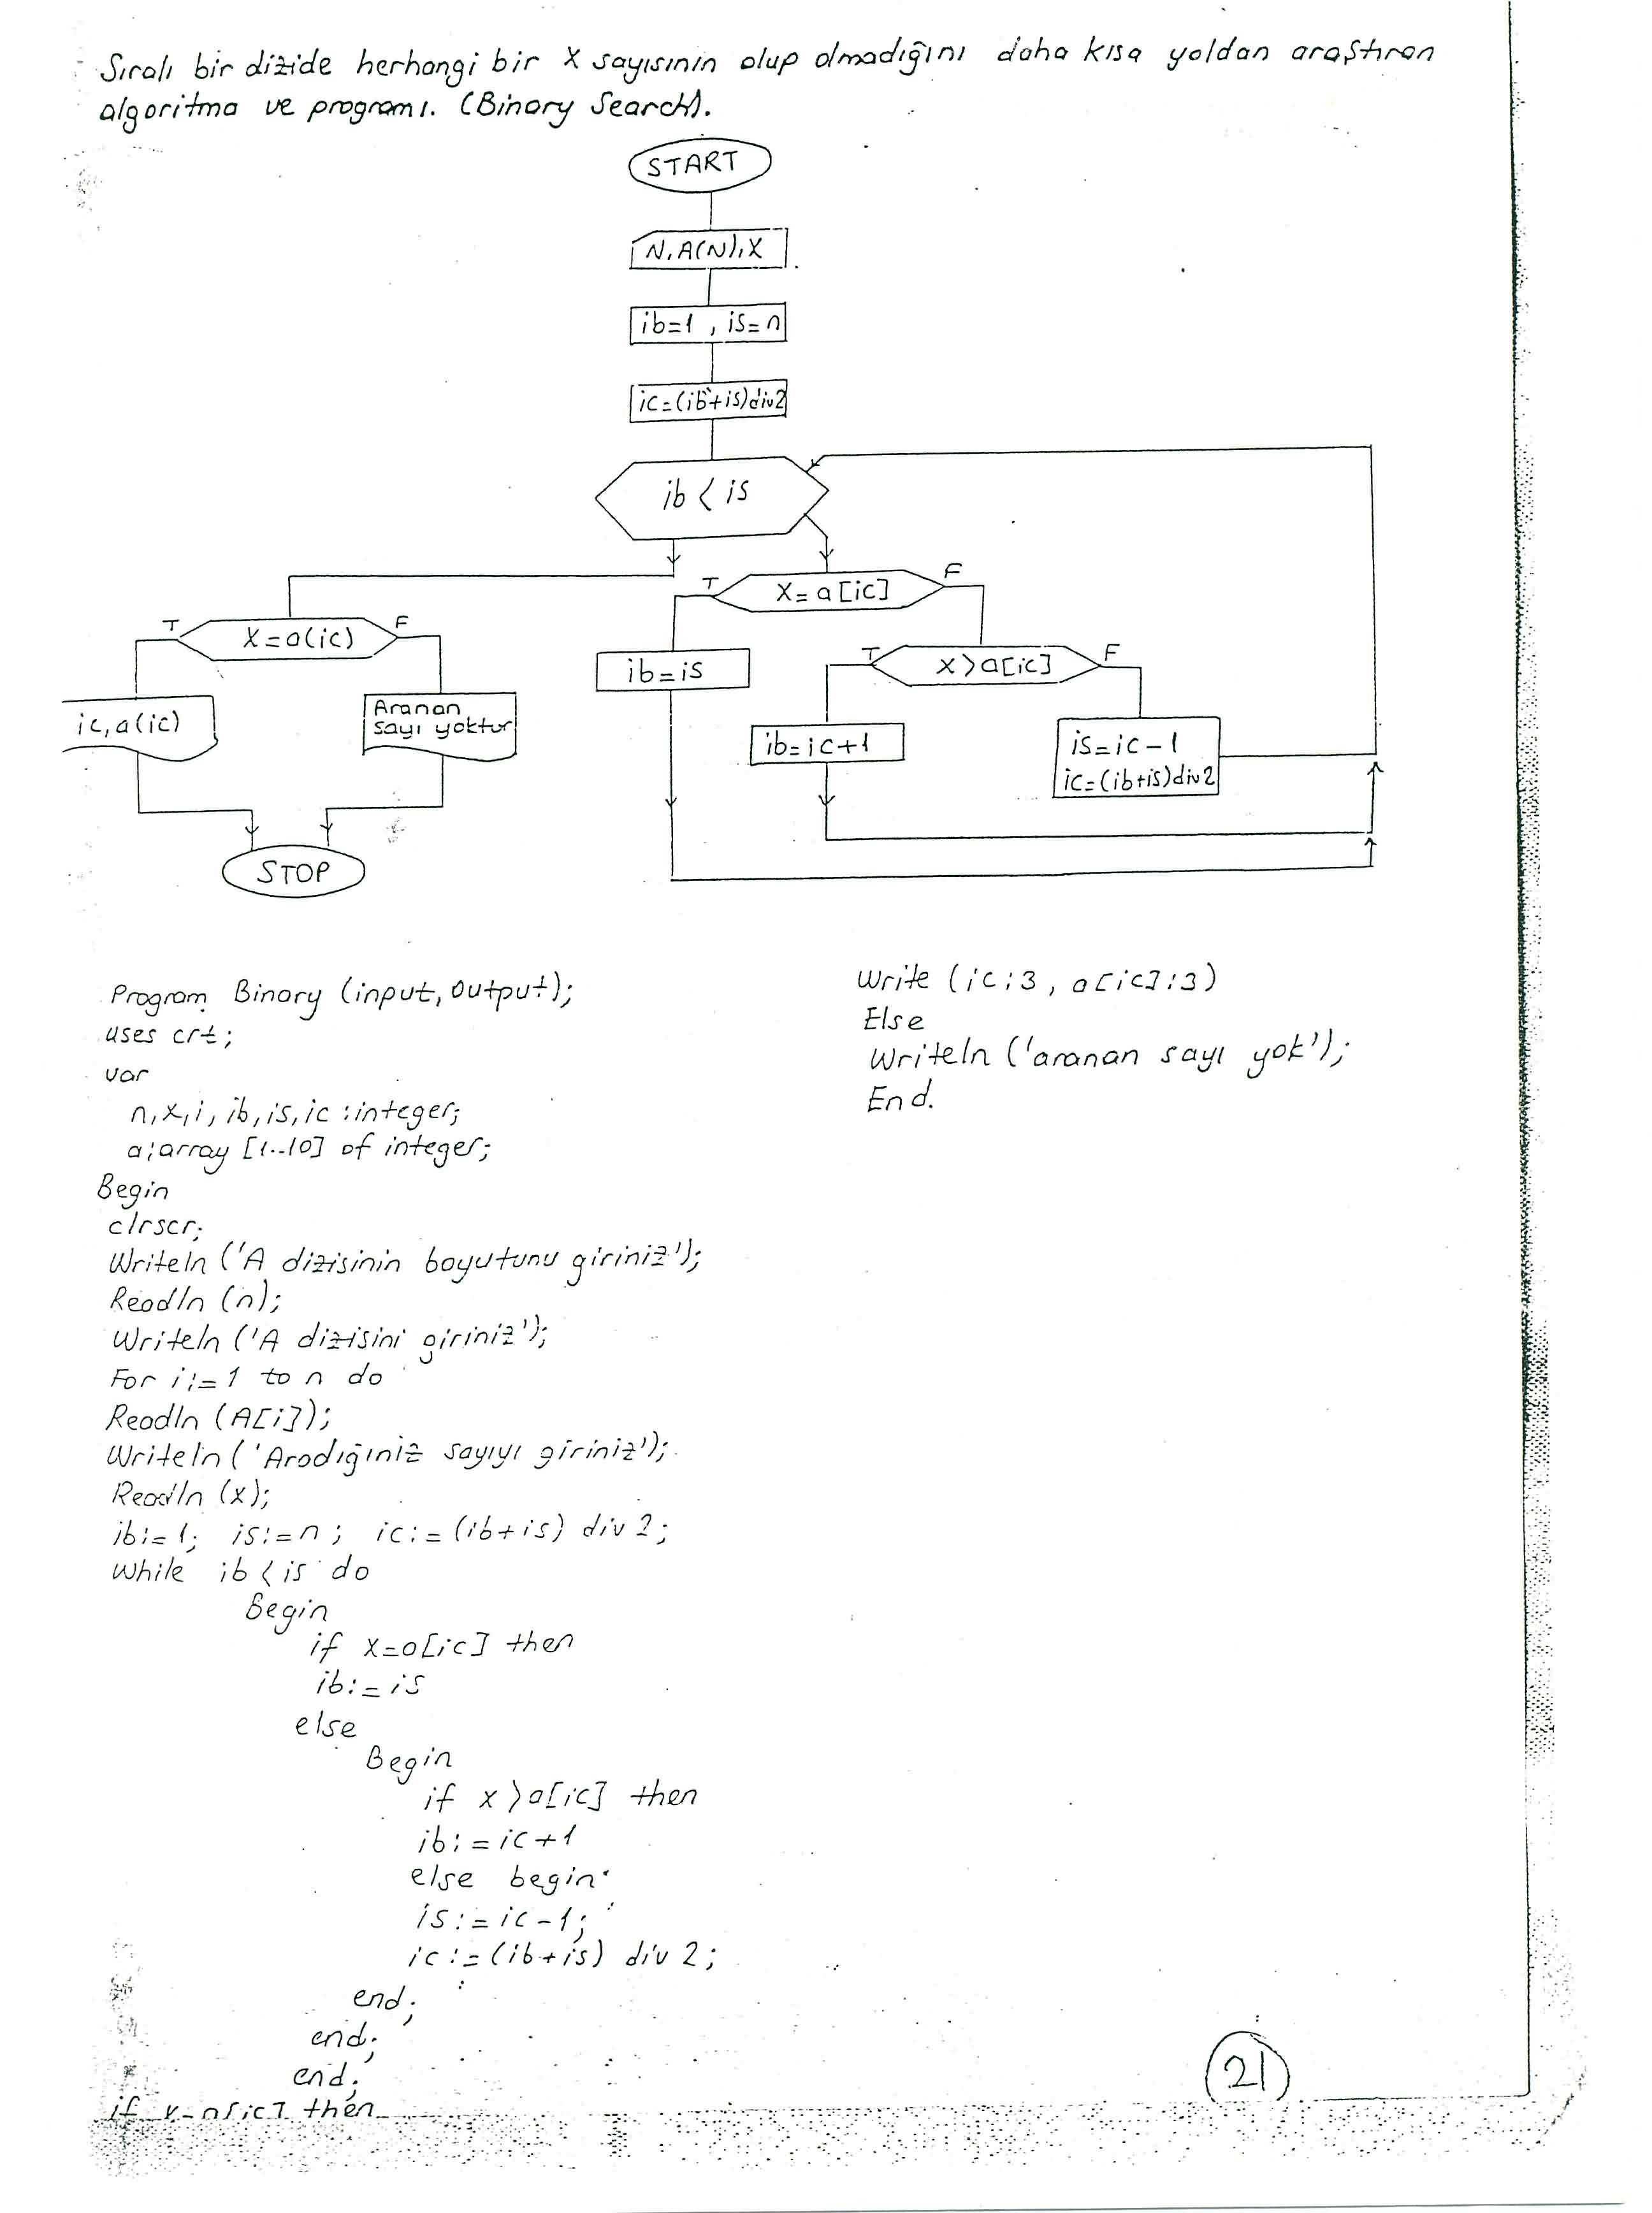 Sıralı bir dizide herhangi bir X sayısının olup olmadığını daha kısa yoldan araştıran
algoritma ve programı. (Binary Search).
START
N,A(N),X
ib=1 , is=n
ic=(ib+is)div2
ib < is
T X=a[ic] F
T X=a(ic) F
ib=is
T x>a[ic] F
ic,a(ic)
Aranan
sayı yoktur
ib=ic+1
is=ic-1
ic=(ib+is)div2
STOP
Program Binary (input,output);
uses crt;
var
n,x,i, ib,is,ic :integer;
a:array [1..10] of integer;
Begin
clrscr;
Writeln ('A dizisinin boyutunu giriniz');
Readln (n);
Writeln ('A dizisini giriniz');
For i:=1 to n do
Readln (A[i]);
Writeln ('Aradığınız sayıyı giriniz');
Readln (x);
ib:=1; is:=n; ic:=(ib+is) div 2;
While ib < is do
Begin
if x=a[ic] then
ib:=is
else
Begin
if x >a[ic] then
ib:=ic+1
else begin
is:=ic-1;
ic:=(ib+is) div 2;
end;
end;
end;
if x=a[ic] then
Write (ic:3, a[ic]:3)
Else
Writeln ('aranan sayı yok');
End.
21